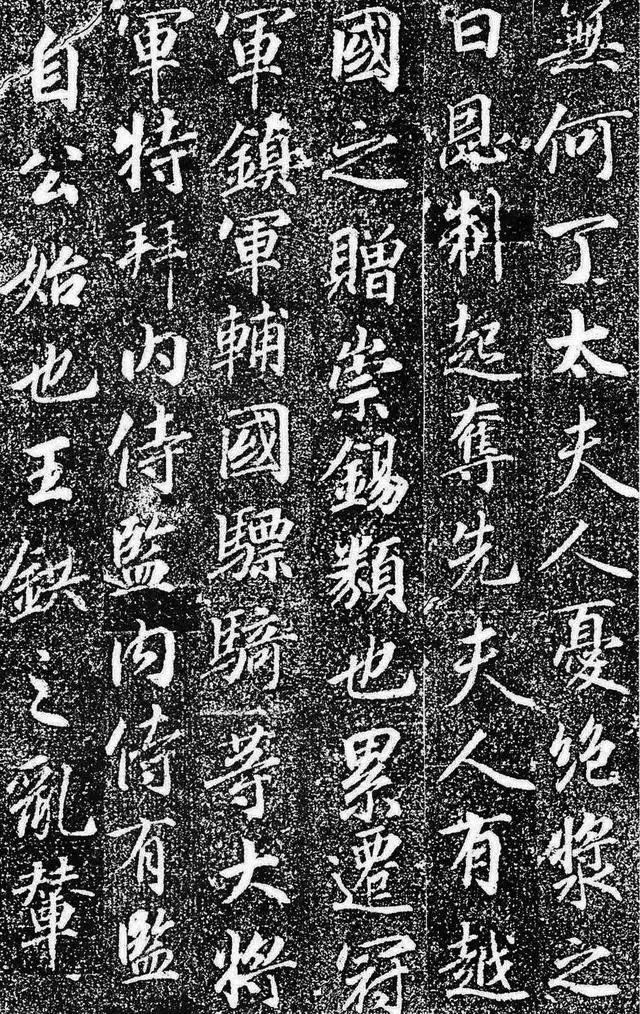 無何丁太夫人憂絶漿之
日恩制起奪先夫人有越
國之贈崇錫類也累遷冠
軍鎮軍輔國驃騎等大將
軍特拜内侍監内侍有監
自公始也王鉷之亂輦